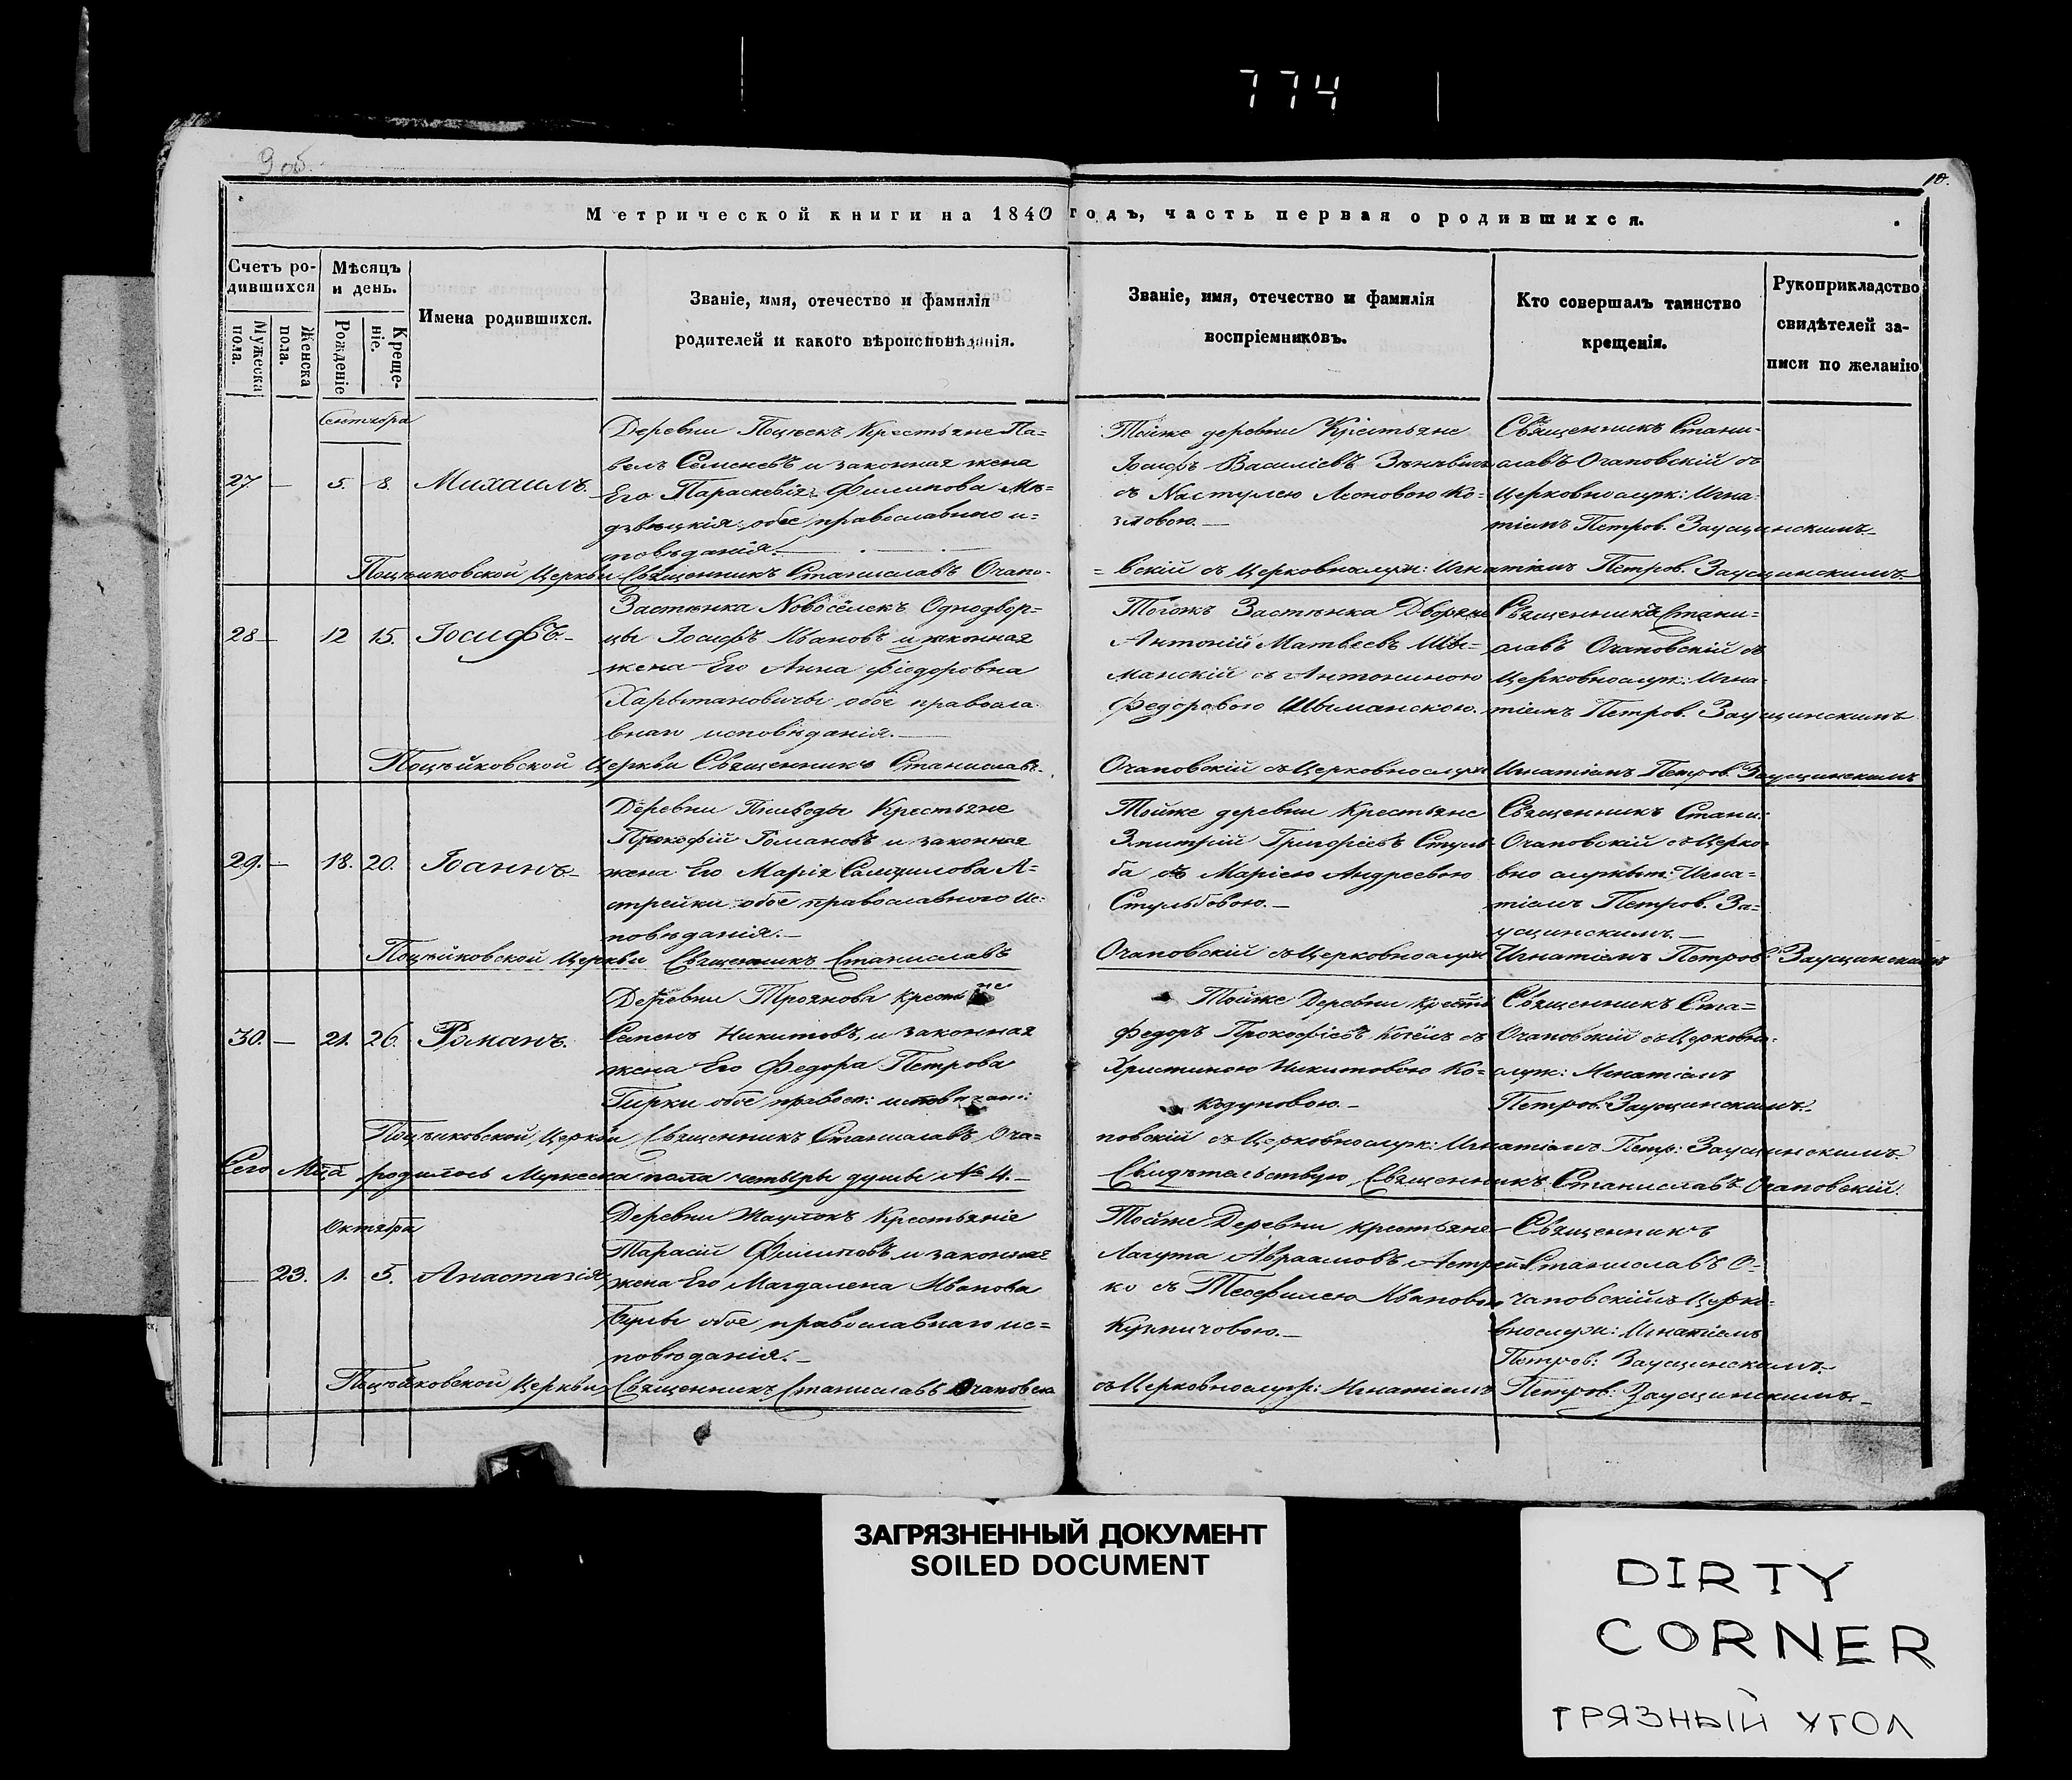 774
9 об.
10.
Метрической книги на 1840 годъ, часть первая о родившихся.
Счетъ родившихся
Мужеска пола.
Женска пола.
Мѣсяцъ и день.
Рожденіе
Крещеніе.
Имена родившихся.
Званіе, имя, отечество и фамилія
родителей и какого вѣроисповѣданія.
Званіе, имя, отечество и фамилія
воспріемниковъ.
Кто совершалъ таинство
крещенія.
Рукоприкладство
свидѣтелей за-
писи по желанію
Сентября
27. — 5. 8. Михаилъ.
Деревни Поцѣекъ Крестьяне Па=
велъ Семеневъ и законная жена
Его Параскевія Филипова
обое православнаго и=
повѣданія.
Тойже деревни Крестьяне
Іосифъ Василіевъ
съ Настулею Леоновою Ко=
зловою.—
Священникъ Стани-
славъ Очаповскій съ
Церковнослуж: Игна-
тіемъ Петров. Заусцинскимъ.
Поцѣйковской Церкви Священникъ Станиславъ Очапо-
=вскій съ Церковнослуж: Игнатіемъ Петров. Заусцинскимъ
28 — 12 15. Іосифъ.
Застѣнка Новосёлекъ Однодвор=
цы Іосифъ Ивановъ и законная
жена Его Анна Фіедоровна
Харытановичы обое правосла
внаго исповѣданія.—
Тогожъ Застѣнка Дворяне
Антоній Матвеевъ Шы=
манскій съ Антониною
Федоровою Шыманскою.
Священникъ Стани-
славъ Очаповскій съ
Церковнослуж: Игна-
тіемъ Петров. Заусцинскимъ
Поцѣйковской Церкви Священникъ Станиславъ
Очаповскій съ Церковнослуж Игнатіемъ Петров. Заусцинскимъ
29. — 18. 20. Іоаннъ.
Деревни Крестьяне
Прокофій Романовъ и законная
жена Его Марія Самуилова А=
стрейки обое православного ис-
повѣданія.—
Тойже деревни Крестьяне
Змитрій Григоріевъ Стуль
ба съ Маріею Андреевою
Стульбовою.—
Священникъ Стани:
Очаповскій съ Церко-
вно служит: Игна=
тіемъ Петров. За=
усцинскимъ.—
Поцѣйковской Церкви Священникъ Станиславъ
Очаповскій съ Церковнослуж Игнатіемъ Петров Заусцинскимъ
30. — 21. 26. Романъ.
Деревни Троянова Крестьяне
Семенъ Никитовъ, и законная
жена Его Федора Петрова
Гирки обое правосл: исповѣдан:
Тойже Деревни Крестья
Федоръ Прокофіевъ съ
Христиною Никитовою Ко=
Священникъ Ста=
Очаповскій съ Церковно-
служ: Игнатіемъ
Петров. Заусцинскимъ.
Поцѣйковской Церкви Священникъ Станиславъ Оча=
повскій съ Церковнослуж: Игнатіемъ Петр: Заусцинскимъ.
Сего Мца родилось Мужеска пола четыры душы № 4.—
Свидѣтельствую Священникъ Станиславъ Очаповскій.
Октября
— 23. 1. 5. Анастазія
Деревни Крестьяніе
Тарасій Филиповъ и законная
жена Его Магдалена Иванова
обое православнаго ис=
повѣданія.—
Тойже Деревни Крестьяне
Лагута Авраамовъ Астрей
ко съ Теофилею Ивановою
Кузмичовою.—
Священникъ
Станиславъ О-
чаповскій съ Церко-
внослуж: Игнатіемъ
Петров: Заусцинскимъ.
Поцѣйковской Церкви Священникъ Станиславъ Очаповскі
съ Церковнослуж: Игнатіемъ Петров: Заусцинскимъ.—
ЗАГРЯЗНЕННЫЙ ДОКУМЕНТ
SOILED DOCUMENT
DIRTY
CORNER
ГРЯЗНЫЙ УГОЛ